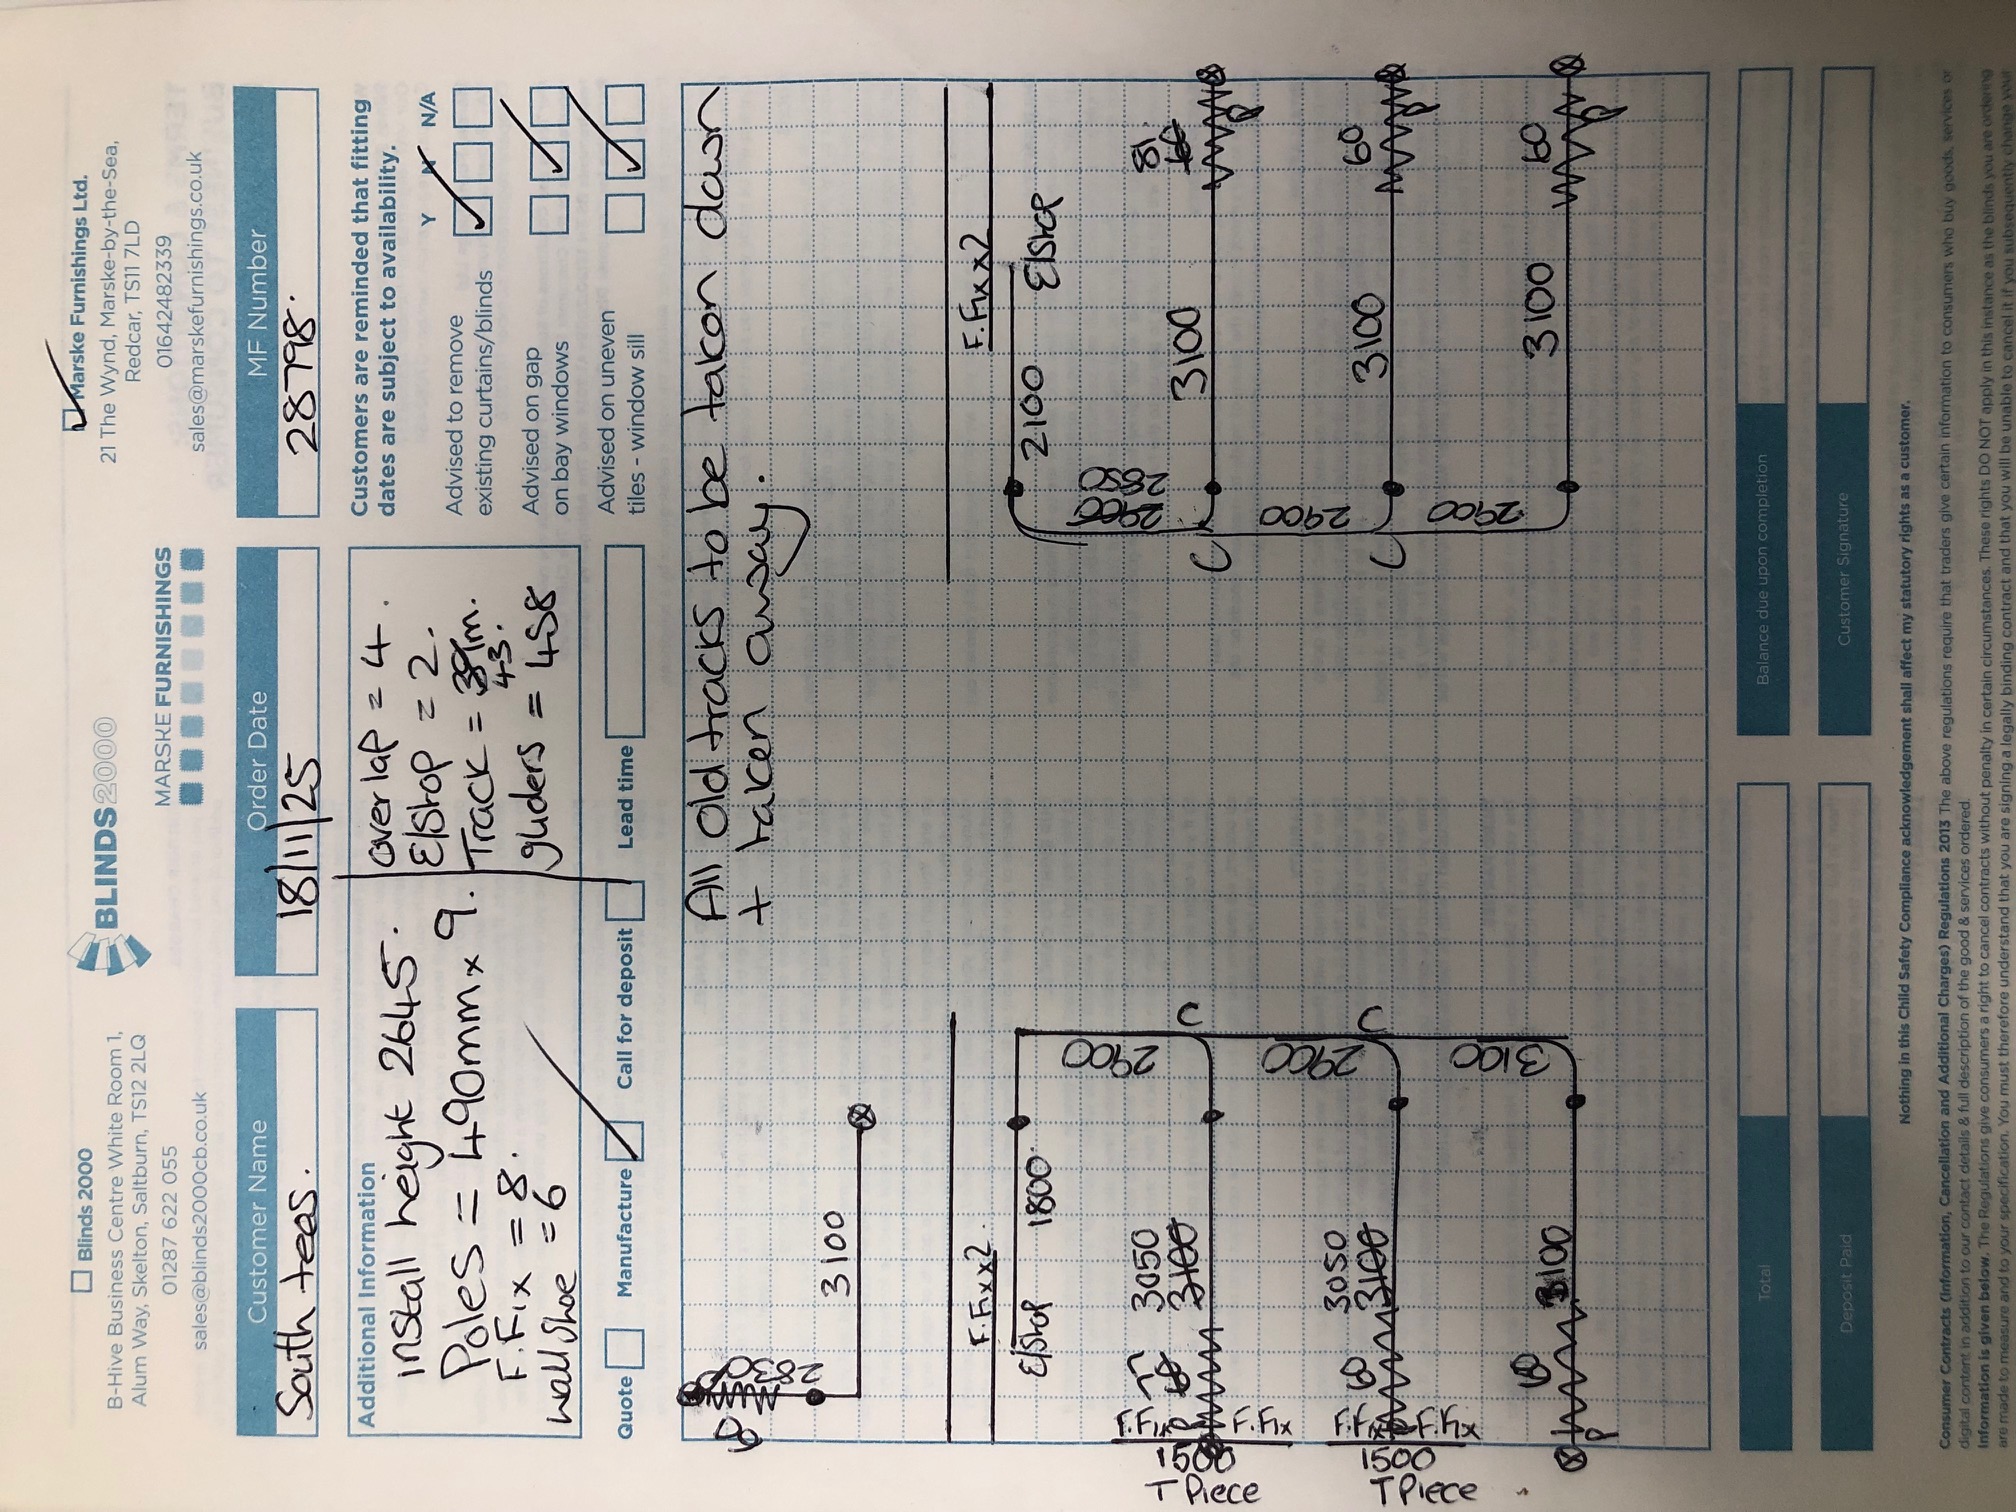 Blinds 2000
B-Hive Business Centre White Room 1,
Alum Way, Skelton, Saltburn, TS12 2LQ
01287 622 055
sales@blinds2000cb.co.uk
BLINDS2000
MARSKE FURNISHINGS
Marske Furnishings Ltd.
21 The Wynd, Marske-by-the-Sea,
Redcar, TS11 7LD
01642482339
sales@marskefurnishings.co.uk
Customer Name
South tees.
Order Date
18/11/25
MF Number
28798.
Additional Information
install height 2645.
Poles = 490mm x 9.
F.Fix = 8.
wall shoe = 6
overlap = 4.
E/Stop = 2.
Track = 39m.
43.
gliders = 458
Customers are reminded that fitting
dates are subject to availability.
Y N N/A
Advised to remove
existing curtains/blinds
Advised on gap
on bay windows
Advised on uneven
tiles - window sill
Quote
Manufacture
Call for deposit
Lead time
All old tracks to be taken down
+ taken away.
2830
3100
F.Fix x2.
E/Stop 1800
2900
C
3050
3100
F.Fix
F.Fix
1500
T Piece
2900
C
3050
3100
F.Fix
F.Fix
1500
T Piece
3100
3100
F.Fix x2
2100 E/Stop
2900
2850
C
3100
81
60
2900
C
3100
60
2900
3100
60
Total
Balance due upon completion
Deposit Paid
Customer Signature
Nothing in this Child Safety Compliance acknowledgement shall affect my statutory rights as a customer.
Consumer Contracts (Information, Cancellation and Additional Charges) Regulations 2013 The above regulations require that traders give certain information to consumers who buy goods, services or
digital content in addition to our contact details & full description of the good & services ordered.
Information is given below. The Regulations give consumers a right to cancel contracts without penalty in certain circumstances. These rights DO NOT apply in this instance as the blinds you are ordering
are made to measure and to your specification. You must therefore understand that you are signing a legally binding contract and that you will be unable to cancel it if you subsequently change your